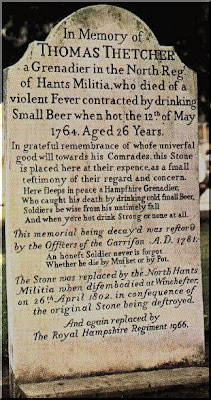 In Memory of
THOMAS THETCHER
a Grenadier in the North Reg.
of Hants Militia, who died of a
violent Fever contracted by drinking
Small Beer when hot the 12th of May
1764. Aged 26 Years.
In grateful remembrance of whose universal
good will towards his Comrades, this Stone
is placed here at their expence, as a small
testimony of their regard and concern.
Here sleeps in peace a Hampshire Grenadier,
Who caught his death by drinking cold small Beer,
Soldiers be wise from his untimely fall
And when ye're hot drink Strong or none at all.
This memorial being decay'd was restor'd
by the Officers of the Garrison A.D. 1781.
An honest Soldier never is forgot
Whether he die by Musket or by Pot.
The Stone was replaced by the North Hants
Militia when disembodied at Winchester,
on 26th April 1802, in consequence of
the original Stone being destroyed.
And again replaced by
The Royal Hampshire Regiment 1966.